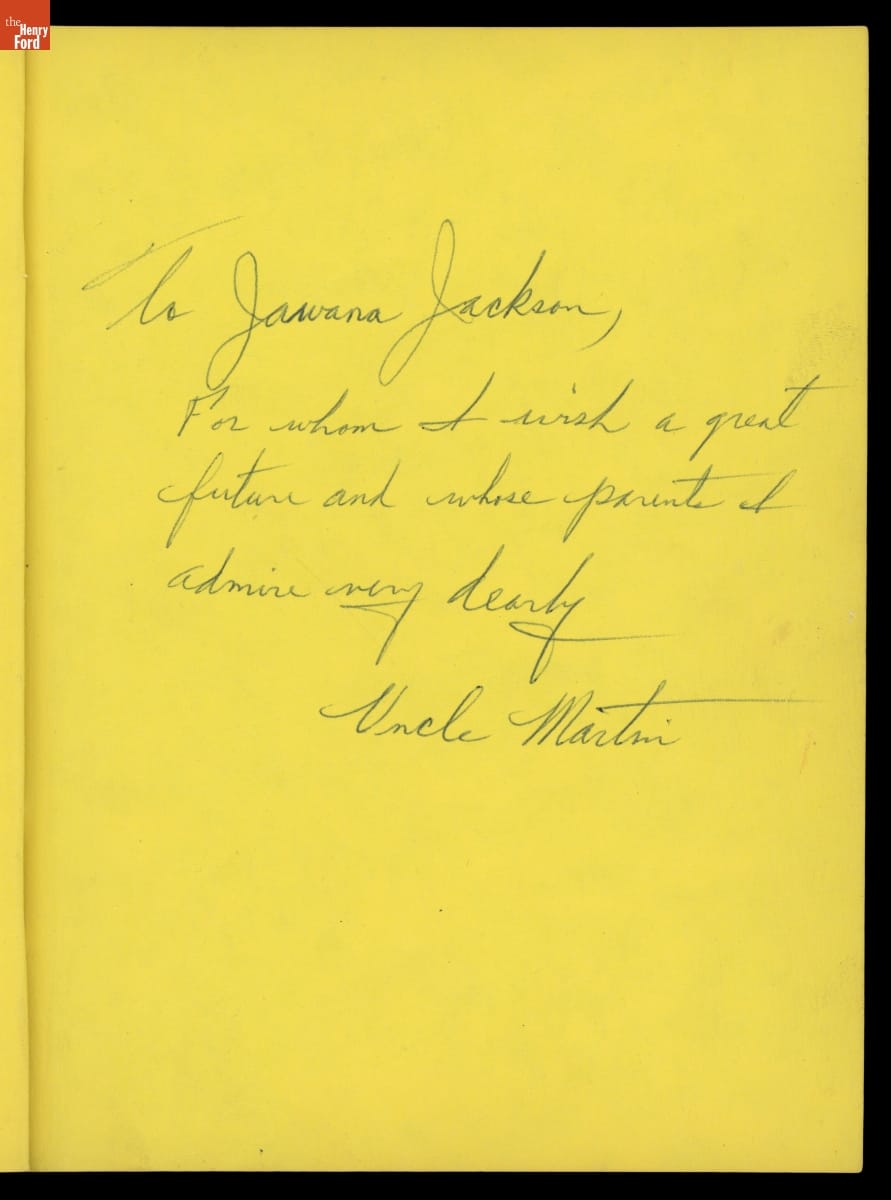 the
Henry
Ford
To Jawana Jackson,
For whom I wish a great
future and whose parents I
admire very dearly
Uncle Martin